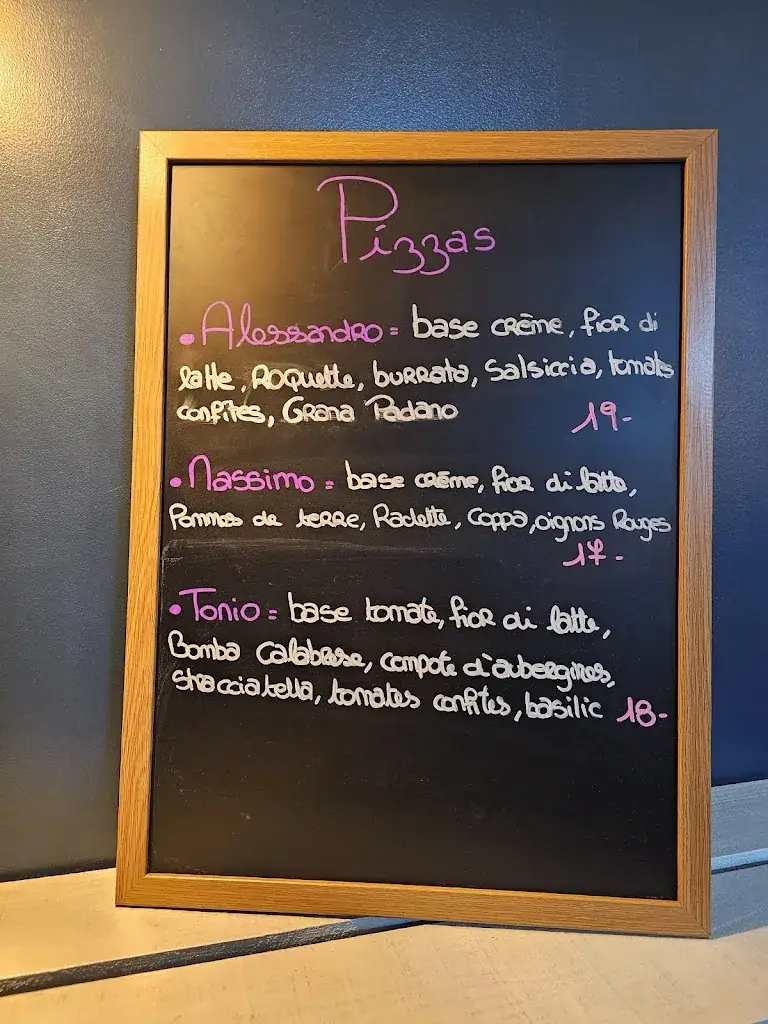 Pizzas
• Alessandro = base crème, fior di
latte, Roquette, burrata, Salsiccia, tomates
confites, Grana Padano 19-
• Massimo = base crème, fior di latte,
Pommes de terre, Raclette, Coppa, oignons Rouges
17-
• Tonio = base tomate, fior di latte,
Bomba calabrese, compote d'aubergines,
stracciatella, tomates confites, basilic 18-